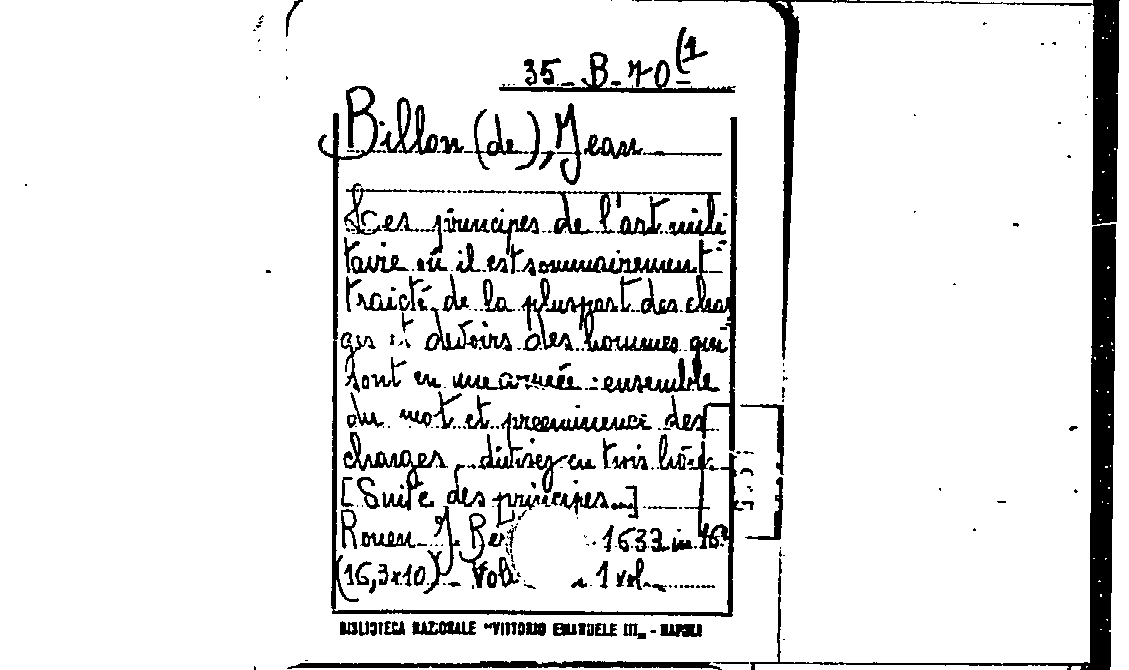 35 - B - 70 (1
Billon (de), Jean
Les principes de l'art mili
taire où il est sommairement
traicté de la pluspart des char
ges et devoirs des hommes qui
sont en une armée : ensemble
du mot et preeminence des
charges divisez en trois livres
[Suite des principes...]
Rouen J. Ber 1633 in 16°
(16,3x10) - Vol 1 vol.
BIBLIOTECA NAZIONALE "VITTORIO EMANUELE III" - NAPOLI